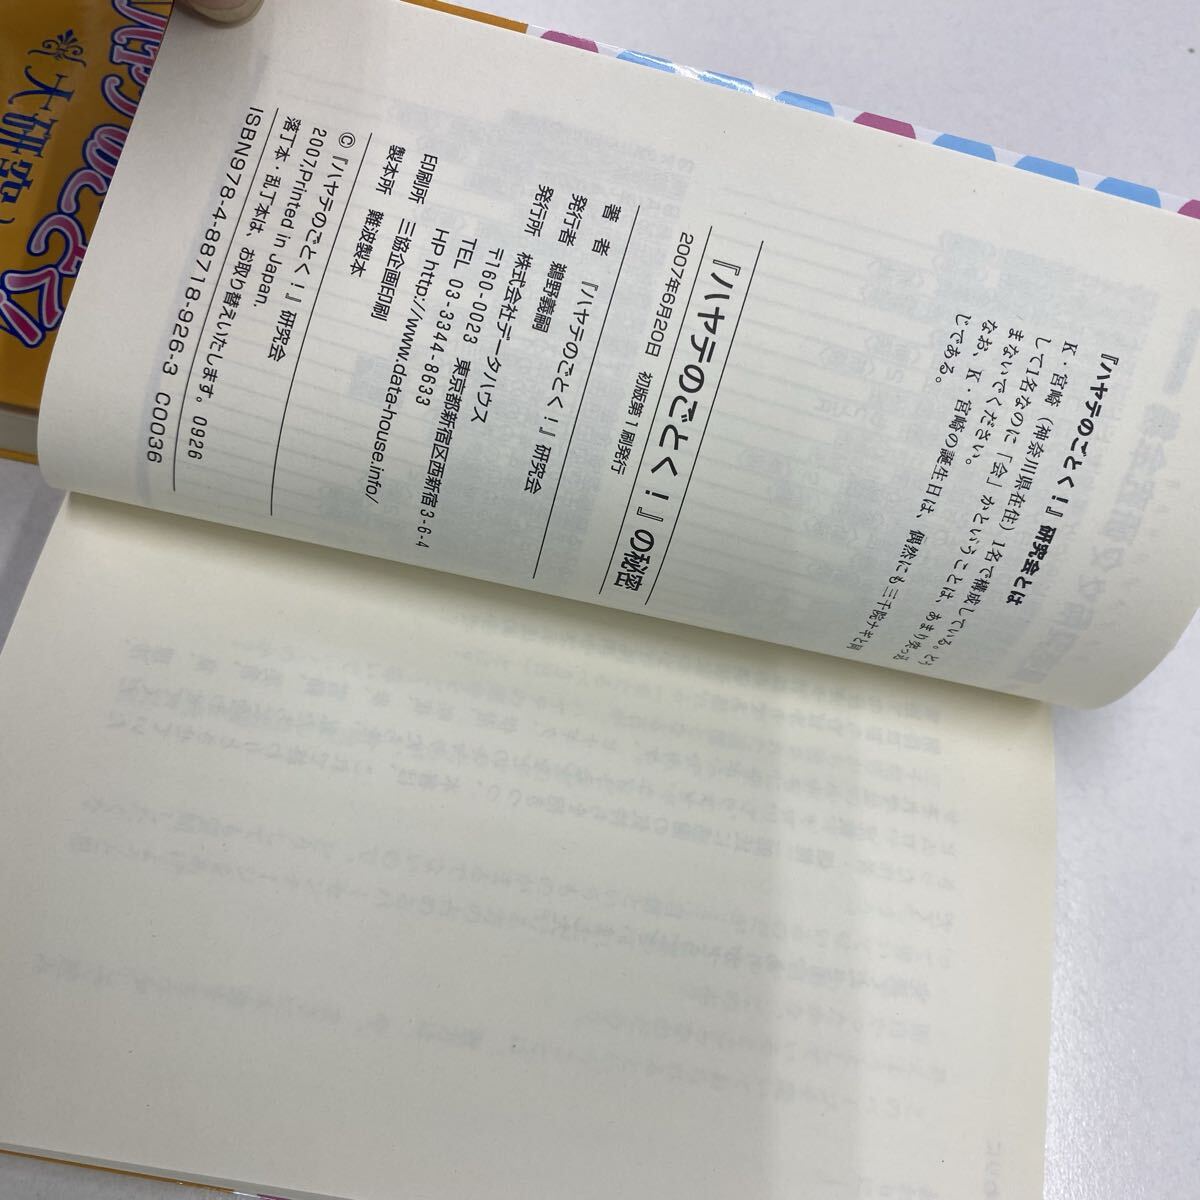 『ハヤテのごとく！』研究会とは
K・宮崎（神奈川県在住）1名で構成している。どう
して1名なのに「会」かということは、あまり突っ込
まないでください。
なお、K・宮崎の誕生日は、偶然にも三千院ナギと同
じである。
『ハヤテのごとく！』の秘密
2007年6月20日 初版第1刷発行
著者 『ハヤテのごとく！』研究会
発行者 鵜野義嗣
発行所 株式会社データハウス
〒160-0023 東京都新宿区西新宿3-6-4
TEL 03-3344-8633
HP http://www.data-house.info/
印刷所 三協企画印刷
製本所 難波製本
©『ハヤテのごとく！』研究会
2007,Printed in Japan.
落丁本 乱丁本は、お取り替えいたします。0926
ISBN978-4-88718-926-3 C0036
大研究